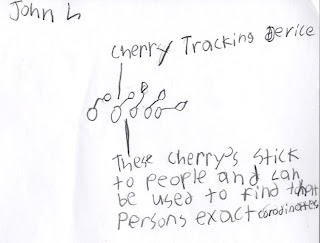 John L
Cherry Tracking Derice
These cherry's stick
to people and can
be used to find that
Persons exact corodinates